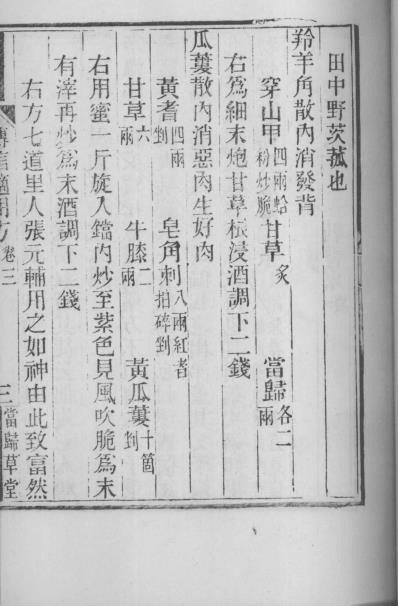 田中野茨菰也
羚羊角散內消發背
穿山甲四兩蛤粉炒脆 甘草炙 當歸各二兩
右爲細末炮甘草根浸酒調下二錢
瓜蔞散內消惡肉生好肉
黃耆四兩剉 皂角刺八兩紅者拍碎剉
甘草六兩 牛膝二兩 黃瓜蔞十箇剉
右用蜜一斤旋入鐺內炒至紫色見風吹脆爲末
有滓再炒爲末酒調下二錢
右方七道里人張元輔用之如神由此致富然
傳信適用方 卷三 三 當歸草堂